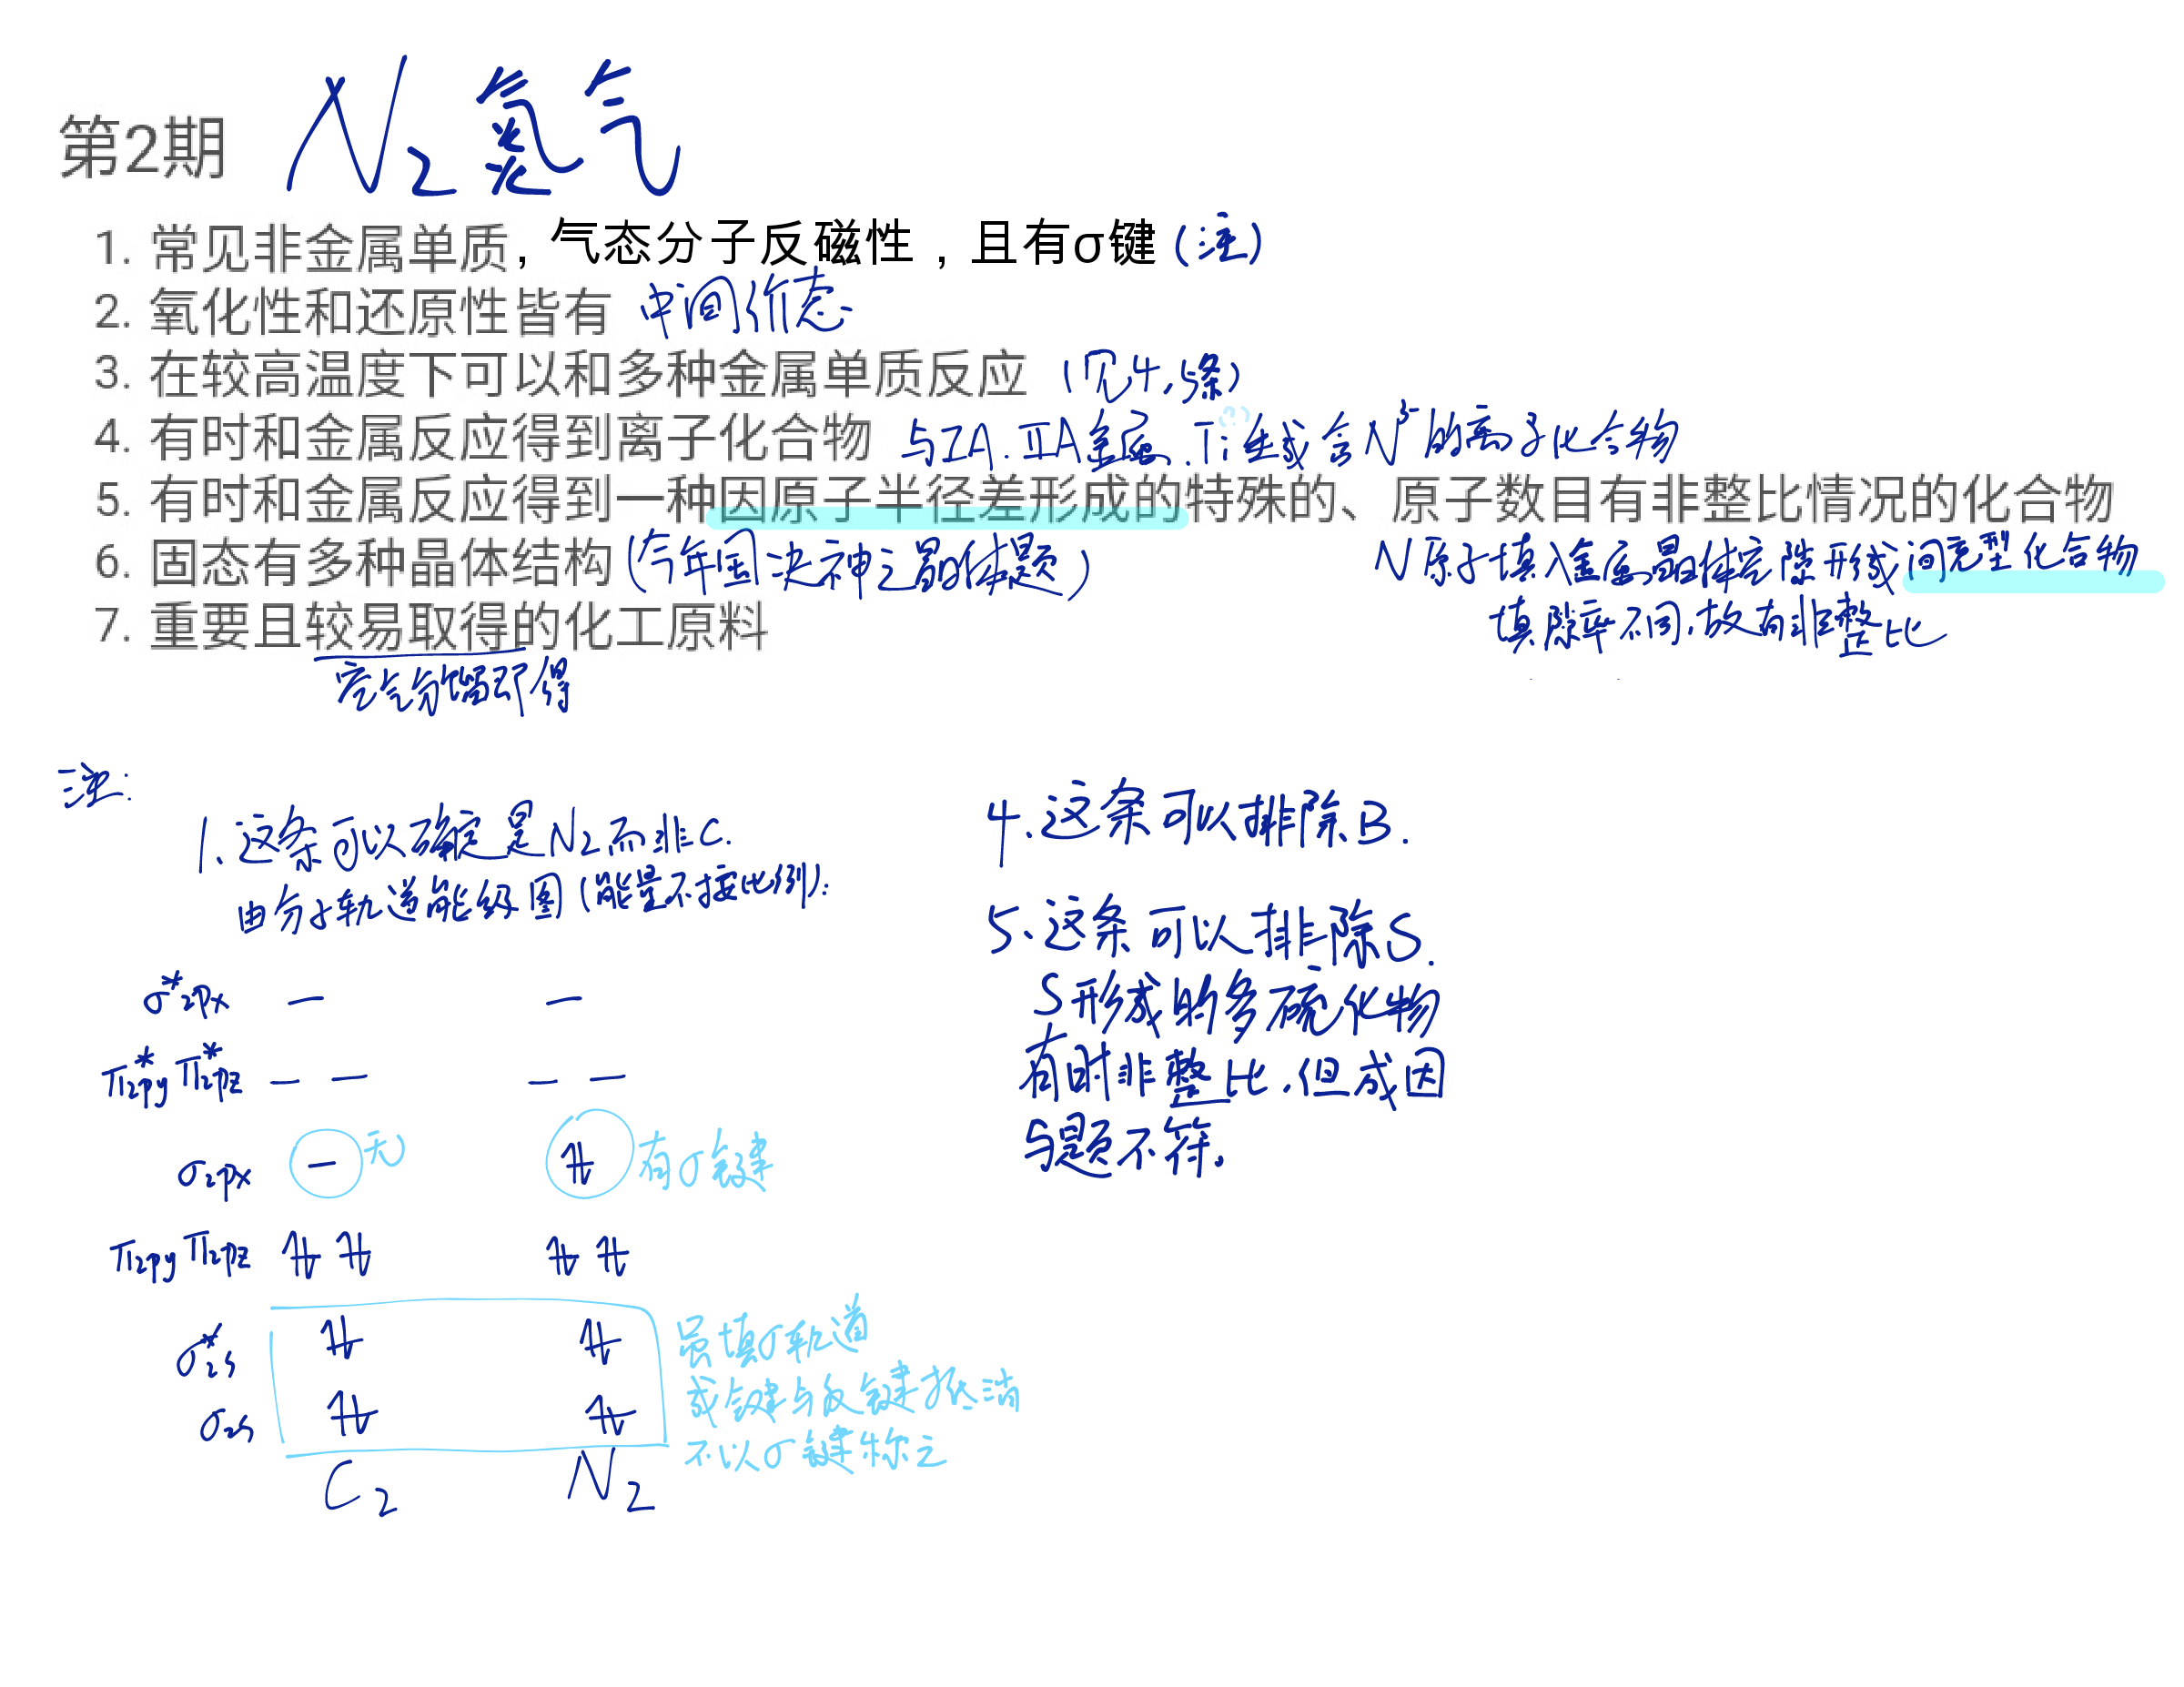 第2期 N₂ 氮气
1. 常见非金属单质，气态分子反磁性，且有σ键 (注)
2. 氧化性和还原性皆有 中间价态.
3. 在较高温度下可以和多种金属单质反应 (见4,5条)
4. 有时和金属反应得到离子化合物 与IA.ⅡA金属.Ti(?)生成含N³⁻的离子化合物
5. 有时和金属反应得到一种因原子半径差形成的特殊的、原子数目有非整比情况的化合物
6. 固态有多种晶体结构 (今年国决神之晶体题) N原子填入金属晶体空隙形成间充型化合物
填隙率不同,故有非整比
7. 重要且较易取得的化工原料
空气分馏即得
注:
1、这条可以确定是N₂而非C.
由分子轨道能级图(能量不按比例):
σ*2px — —
π*2py π*2pz — — — —
σ2px — 无 ⇅ 有σ键
π2py π2pz ⇅ ⇅ ⇅ ⇅
σ*2s ⇅ ⇅
σ2s ⇅ ⇅
虽填σ轨道
成键与反键抵消
不以σ键称之
C₂ N₂
4.这条可以排除B.
5.这条可以排除S.
S形成的多硫化物
有时非整比,但成因
与题不符。